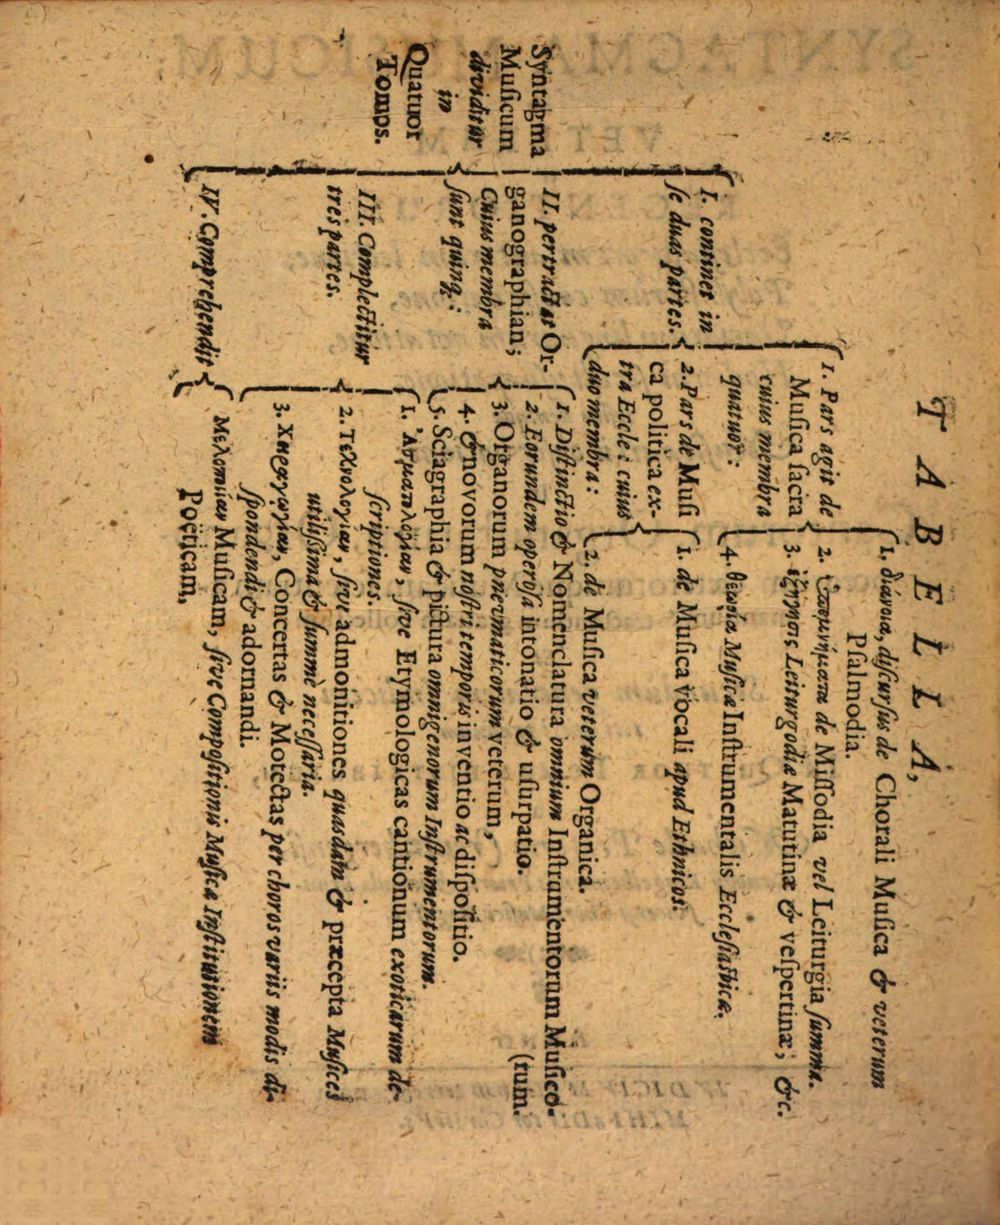 TABELLA,
Syntagma
Muſicum
dividitur
in
Quatuor
Tomos.
I. continet in
ſe duas partes.
1. Pars agit de
Muſica ſacra
cuius membra
quatuor:
1. διάνοια, diſcurſus de Chorali Muſica & veterum
Pſalmodia.
2. Ὑπομνήματα de Miſſodia vel Leiturgia ſumma.
3. ἐξήγησις Leiturgodiæ Matutinæ & veſpertinæ; &c.
4. θεωρία Muſicæ Inſtrumentalis Eccleſiaſticæ.
2. Pars de Muſi
ca politica ex-
tra Eccle: cuius
duo membra:
1. de Muſica vocali apud Ethnicos.
2. de Muſica veterum Organica.
II. pertractat Or-
ganographian;
Cuius membra
ſunt quinq;:
1. Diſtinctio & Nomenclatura omnium Inſtrumentorum Muſico-
(rum.
2. Eorundem operoſa intonatio & uſurpatio.
3. Organorum pnevmaticorum veterum,
4. & novorum noſtri temporis inventio ac diſpoſitio.
5. Sciagraphia & pictura omnigenorum Inſtrumentorum.
III. Complectitur
tres partes.
1. Ἀσματολογίαν, ſive Etymologicas cantionum exoticarum de-
ſcriptiones.
2. Τεχνολογιαν, ſive admonitiones quasdam & præcepta Muſices
utiliſſima & ſummè neceſſaria.
3. Χοραγωγίαν, Concertas & Motectas per choros variis modis di-
ſpondendi & adornandi.
IV. Comprehendit
Μελοποιίαν Muſicam, ſive Compoſitionis Muſicæ Inſtitutionem
Poëticam,